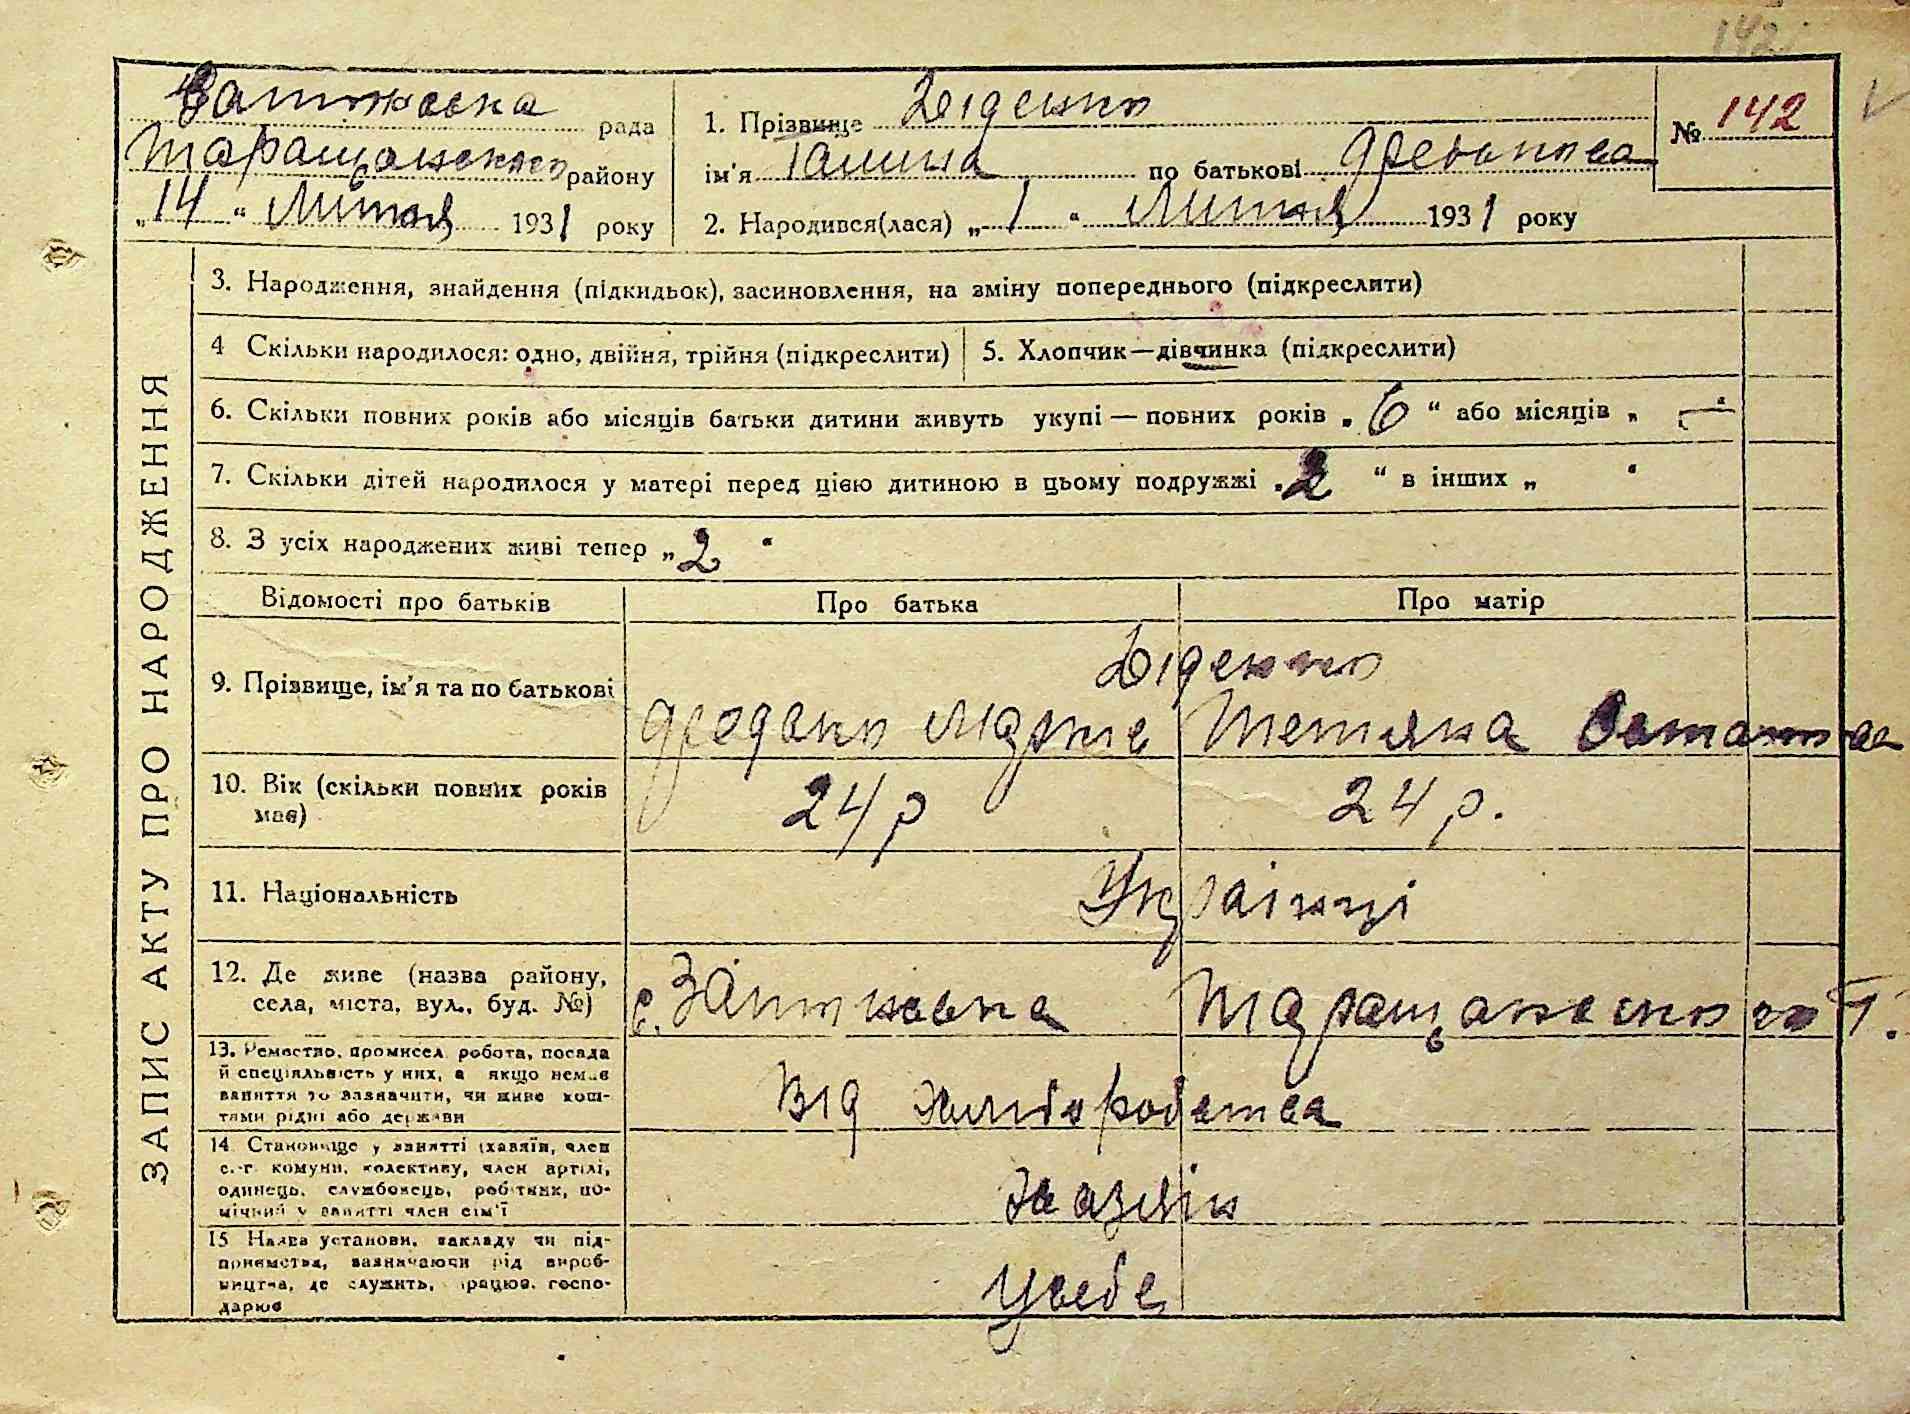 142
рада
Таращанського району
„14“ Лютня 1931 року
1. Прізвище Діденко
ім'я Галина по батькові
2. Народився(лася) „1“ Лютня 1931 року
№ 142
ЗАПИС АКТУ ПРО НАРОДЖЕННЯ
3. Народження, знайдення (підкидьок), засиновлення, на зміну попереднього (підкреслити)
4 Скільки народилося: одно, двійня, трійня (підкреслити)
5. Хлопчик—дівчинка (підкреслити)
6. Скільки повних років або місяців батьки дитини живуть укупі — повних років „6“ або місяців „ — “
7. Скільки дітей народилося у матері перед цією дитиною в цьому подружжі „2“ в інших „ “
8. З усіх народжених живі тепер „2“
Відомості про батьків
Про батька
Про матір
9. Прізвище, ім'я та по батькові
Діденко
Тетяна
10. Вік (скільки повних років
має)
24 р
24 р.
11. Національність
Українці
12. Де живе (назва району,
села, міста, вул., буд. №)
с. Таращанського
13. Ремество, промисел, робота, посада
й спеціяльність у них, а якщо немає
заняття то зазначити, чи живе кош-
тами рідні або держави
Від хліборобства
14 Становище у занятті (хазяїн, член
с.-г. комуни, колективу, член артілі,
одинець, службовець, робітник, по-
мічний у занятті член сім'ї
Хазяїн
15 Назва установи, закладу чи під-
приємства, зазначаючи рід вироб-
ництва, де служить, працює, госпо-
дарює
У себе